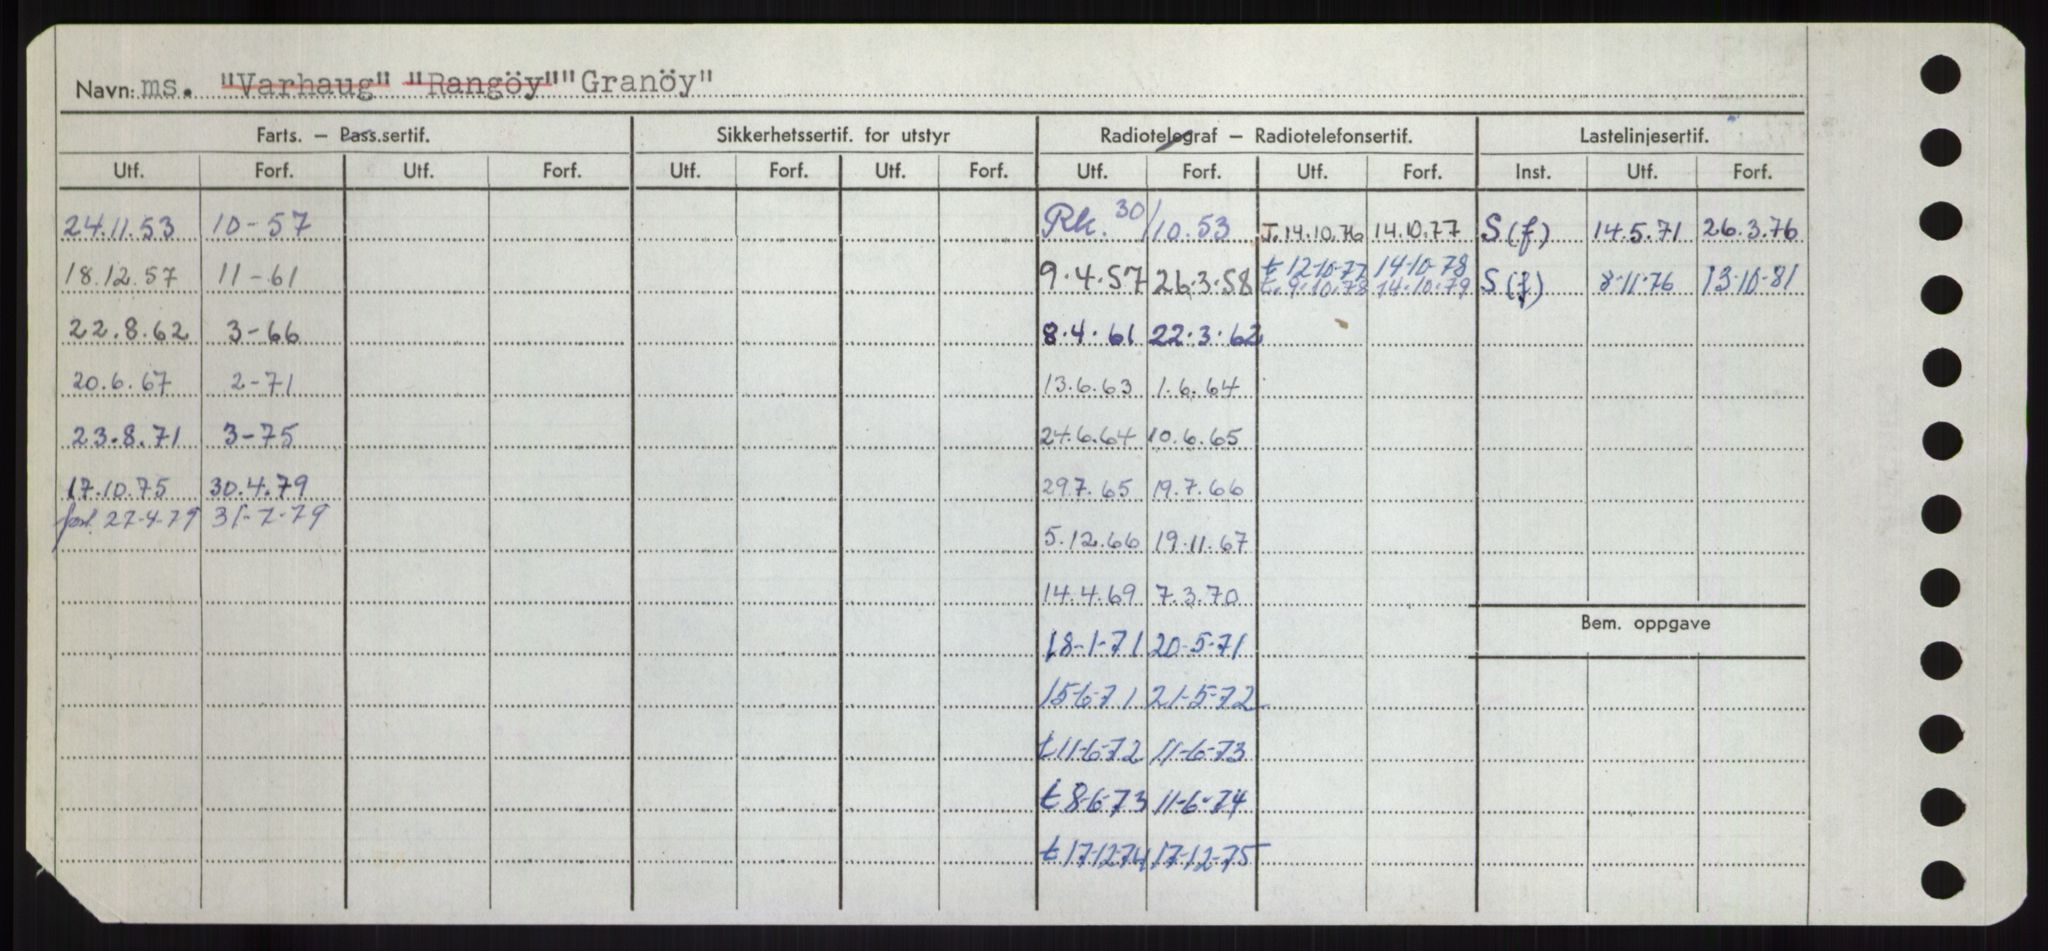 Navn: ms. "Varhaug" "Rangöy" "Granöy"
Farts. — Pass.sertif. Sikkerhetssertif. for utstyr Radiotelegraf — Radiotelefonsertif. Lastelinjesertif.
Utf. Forf. Utf. Forf. Utf. Forf. Utf. Forf. Utf. Forf. Utf. Forf. Inst. Utf. Forf.
24.11.53 10-57 Rk. 30/10.53 T. 14.10.76 14.10.77 S(f) 14.5.71 26.3.76
18.12.57 11-61 9.4.57 26.3.58 t 12-10-77 14-10-78 S(f) 8-11-76 13-10-81
t. 9.10.78 14.10.79
22.8.62 3-66 8.4.61 22.3.62
20.6.67 2-71 13.6.63 1.6.64
23.8.71 3-75 24.6.64 10.6.65
17.10.75 30.4.79 29.7.65 19.7.66
forl. 27-4-79 31-7-79
5.12.66 19.11.67
14.4.69 7.3.70
Bem. oppgave
18-1-71 20-5-71
15-6-71 21-5-72
t 11-6-72 11-6-73
t 8-6-73 11-6-74
t 17-12-74 17-12-75